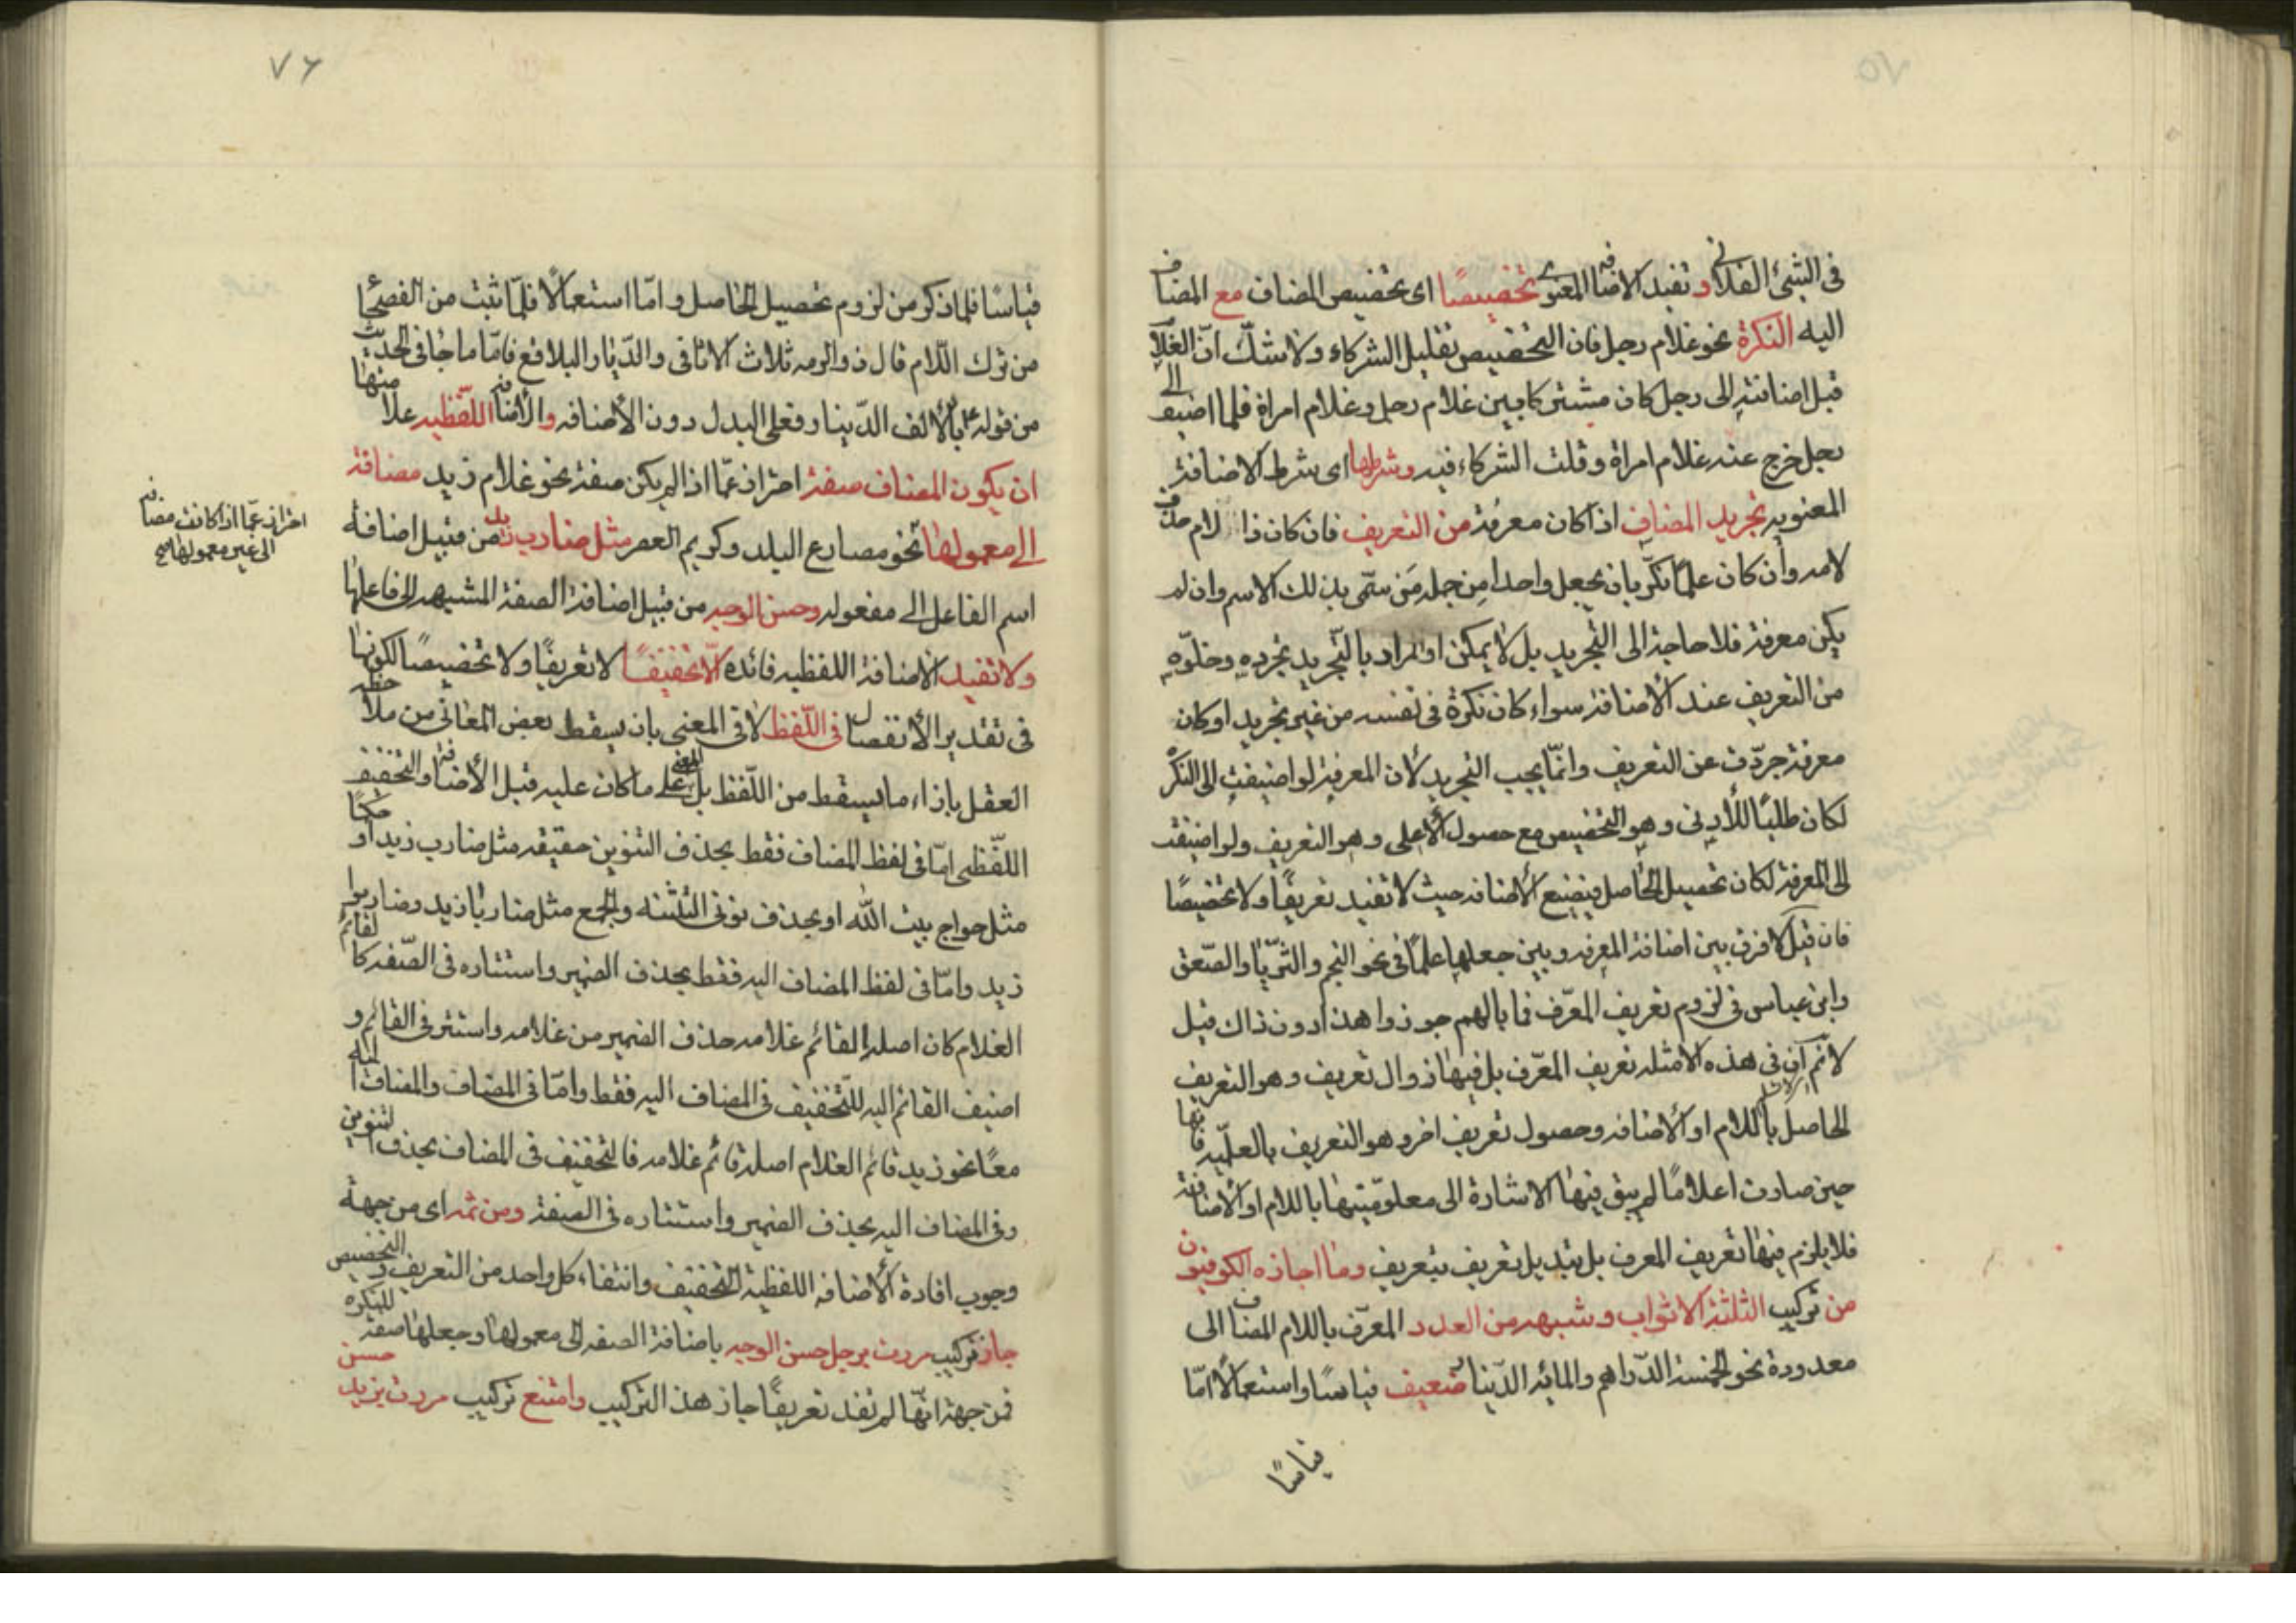 ٧٥
في الشيئ الفلاني وتفيد الاضافه المعنوى تخصيصًا اى تخصيص المضاف مع المضاف
اليه النكرة نحو غلام رجل فان التخصيص تقليل الشركاء ولا شكّ انّ الغلام
قبل اضافته الى رجل كان مشتركا بين غلام رجل وغلام امراة فلما اضيف الى
رجل خرج عنه غلام امراة وقلت الشركاء فيه وشرطها اى شرط الاضافة
المعنويه تجريد المضاف اذا كان معرفة من التعريف فان كان ذا لام حذف
لامه وان كان علمًا نكّر بان يجعل واحدا من جمله مَن سمّى بذلك الاسم وان لم
يكن معرفة فلا حاجة الى التجريد بل لا يمكن او المراد بالتّجريد تجرده وخلوّه
من التعريف عند الأضافة سواء كان نكرة في نفسه من غير تجريد او كان
معرفة جرّدت عن التعريف وانّما يجب التجريد لأن المعرفة لو اضيفت الى النكره
لكان طلبًا للأدنى وهو التخصيص مع حصول الأعلى وهو التعريف ولو اضيفت
الى المعرفة لكان تحصيل الحاصل فيضيع الأضافه حيث لا تفيد تعريفًا ولا تخصيصًا
فان قيل لا فرق بين اضافة المعرفه وبين جعلها علمًا في نحو النجم والثريّا والصّعق
وابن عباس في لزوم تعريف المعرّف فما بالهم جوزوا هذا دون ذاك قيل
لانّم انّ في هذه الامثله تعريف المعرّف بل فيها زوال تعريف وهو التعريف
الحاصل باللام او الأضافه وحصول تعريف اخر وهو التعريف بالعلميّه فانها
حين صارت اعلامًا لم يبق فيها الاشارة الى معلوميّتها باللام او الأضافة
فلا يلزم فيها تعريف المعرف بل تبديل تعريف بتعريف وما اجازه الكوفيون
من تركيب الثلثة الاثواب وشبهه من العدد المعرّف باللام المضاف الى
معدودة نحو الخمسة الدّراهم والمائه الدّينار ضعيف قياسًا واستعمالًا امّا
قياسًا
٧٦
قياسًا فلما ذكر من لزوم تحصيل الحاصل وامّا استعمالًا فلمّا ثبت من الفصحاء
من ترك اللّام قال ذو الرمه ثلاث الاثافى والدّيار البلاقع فامّا ما جاء في الحديث
من قوله ع بالألف الدّينار فعلى البدل دون الأضافه والأضافة اللفّظيه علامتها
ان يكون المضاف صفة احتراز عمّا اذا لم يكن صفة نحو غلام زيد مضافة
الى معمولها نحو مصارع البلد وكريم العصر مثل ضارب زيد من قبيل اضافة
احتراز عمّا اذا كانت مضافه
الى غير معمولها صح
اسم الفاعل الى مفعوله وحسن الوجه من قبيل اضافة الصفة المشبهه الى فاعلها
ولا تفيد الأضافة اللفظيه فائده الّا تخفيفًا لا تعريفًا ولا تخصيصًا لكونها
في تقدير الأنفصال في اللّفظ لا في المعنى بان يسقط بعض المعانى من ملاحظه
العقل بازاء ما يسقط من اللّفظ بل المعنى على ما كان عليه قبل الأضافة والتخفيف
اللّفظى امّا في لفظ المضاف فقط بحذف التنوين حقيقه مثل ضارب زيد او حكمًا
مثل حواج بيت الله او بحذف نونى التثنيه والجمع مثل ضاربا زيد وضاربوا
زيد وامّا في لفظ المضاف اليه فقط بحذف الضمير واستتاره في الصّفه كالقائم
الغلام كان اصله القائم غلامه حذف الضمير من غلامه واستتر في القائم و
اضيف القائم اليه للتّخفيف في المضاف اليه فقط وامّا في المضاف والمضاف اليه
معًا نحو زيد قائم الغلام اصله قائم غلامه فالتخفيف في المضاف بحذف التنوين
وفى المضاف اليه بحذف الضمير واستتاره في الصفة ومن ثمّه اى من جهة
وجوب افادة الأضافه اللفظية التخفيف وانتفاء كل واحد من التعريف والتخصيص
جاز تركيب مررت برجل حسن الوجه باضافة الصفه الى معمولها وجعلها صفة للنكره
فمن جهة انّها لم تفد تعريفًا جاز هذا التركيب وامتنع تركيب مررت بزيد حسن